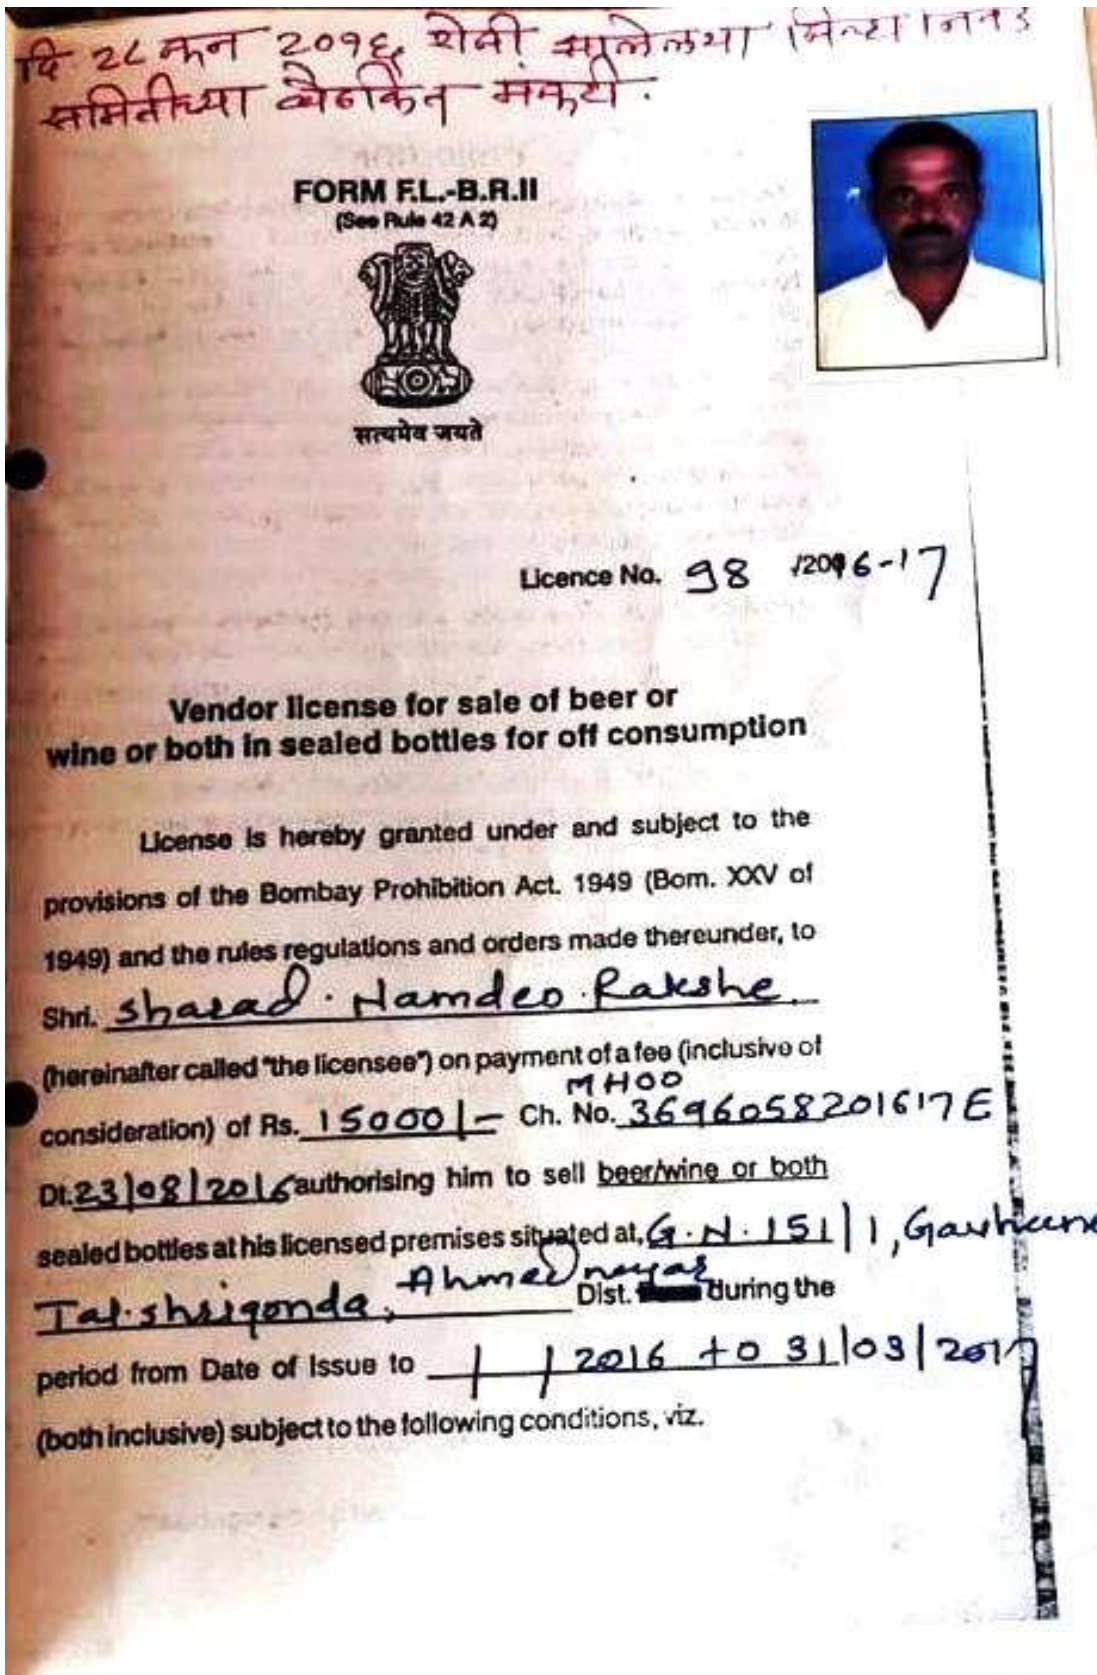 दि २८ जून २०१६ रोजी झालेल्या जिल्हा निवड
समितीच्या बैठकित मंजुरी.
FORM F.L.-B.R.II
(See Rule 42 A 2)
सत्यमेव जयते
Licence No. 98 /2016-17
Vendor license for sale of beer or
wine or both in sealed bottles for off consumption
License is hereby granted under and subject to the
provisions of the Bombay Prohibition Act. 1949 (Bom. XXV of
1949) and the rules regulations and orders made thereunder, to
Shri. Sharad. Namdeo. Rakshe.
(hereinafter called "the licensee") on payment of a fee (inclusive of
MHOO
consideration) of Rs. 15000/- Ch. No. 3696058201617E
Dt. 23/08/2016 authorising him to sell beer/wine or both
sealed bottles at his licensed premises situated at, G.N. 151/1,
Tal. Shrigonda, Ahmednagar Dist. during the
period from Date of Issue to / / 2016 to 31/03/2017
(both inclusive) subject to the following conditions, viz.